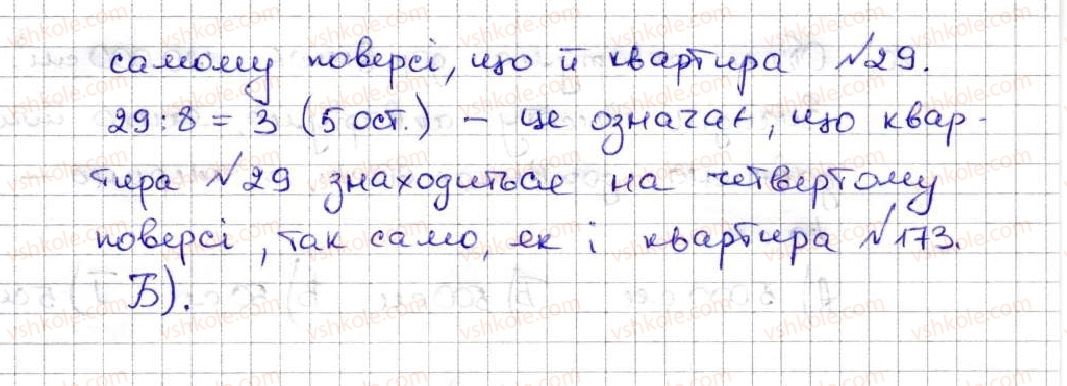 самому поверсі, що й квартира №29.
29:8 = 3 (5 ост.) – це означає, що квар-
тира №29 знаходиться на четвертому
поверсі, так само, як і квартира №173.
Б).